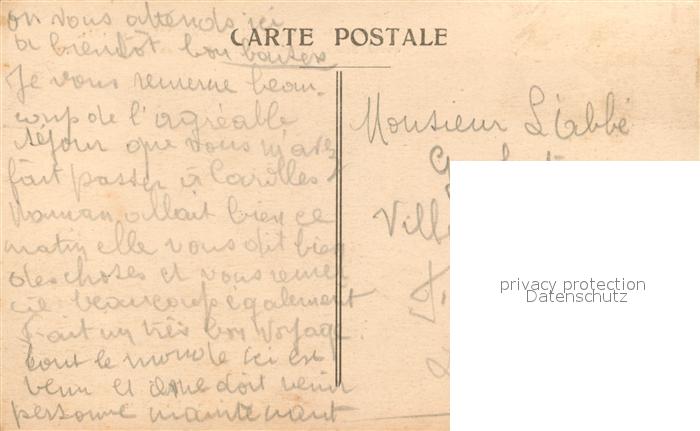 on vous attends ici
a bientôt bon baisers
CARTE POSTALE
Je vous remercie beau-
coup de l'agréable
séjour que vous m'avez
fait passer à Carolles
Maman allait bien ce
matin elle vous dit bien
des choses et vous remer
cie beaucoup également
Fait un très bon voyage
tout le monde ici est
venu et doit venir
personne maintenant
Monsieur L'abbé
Vill
privacy protection
Datenschutz